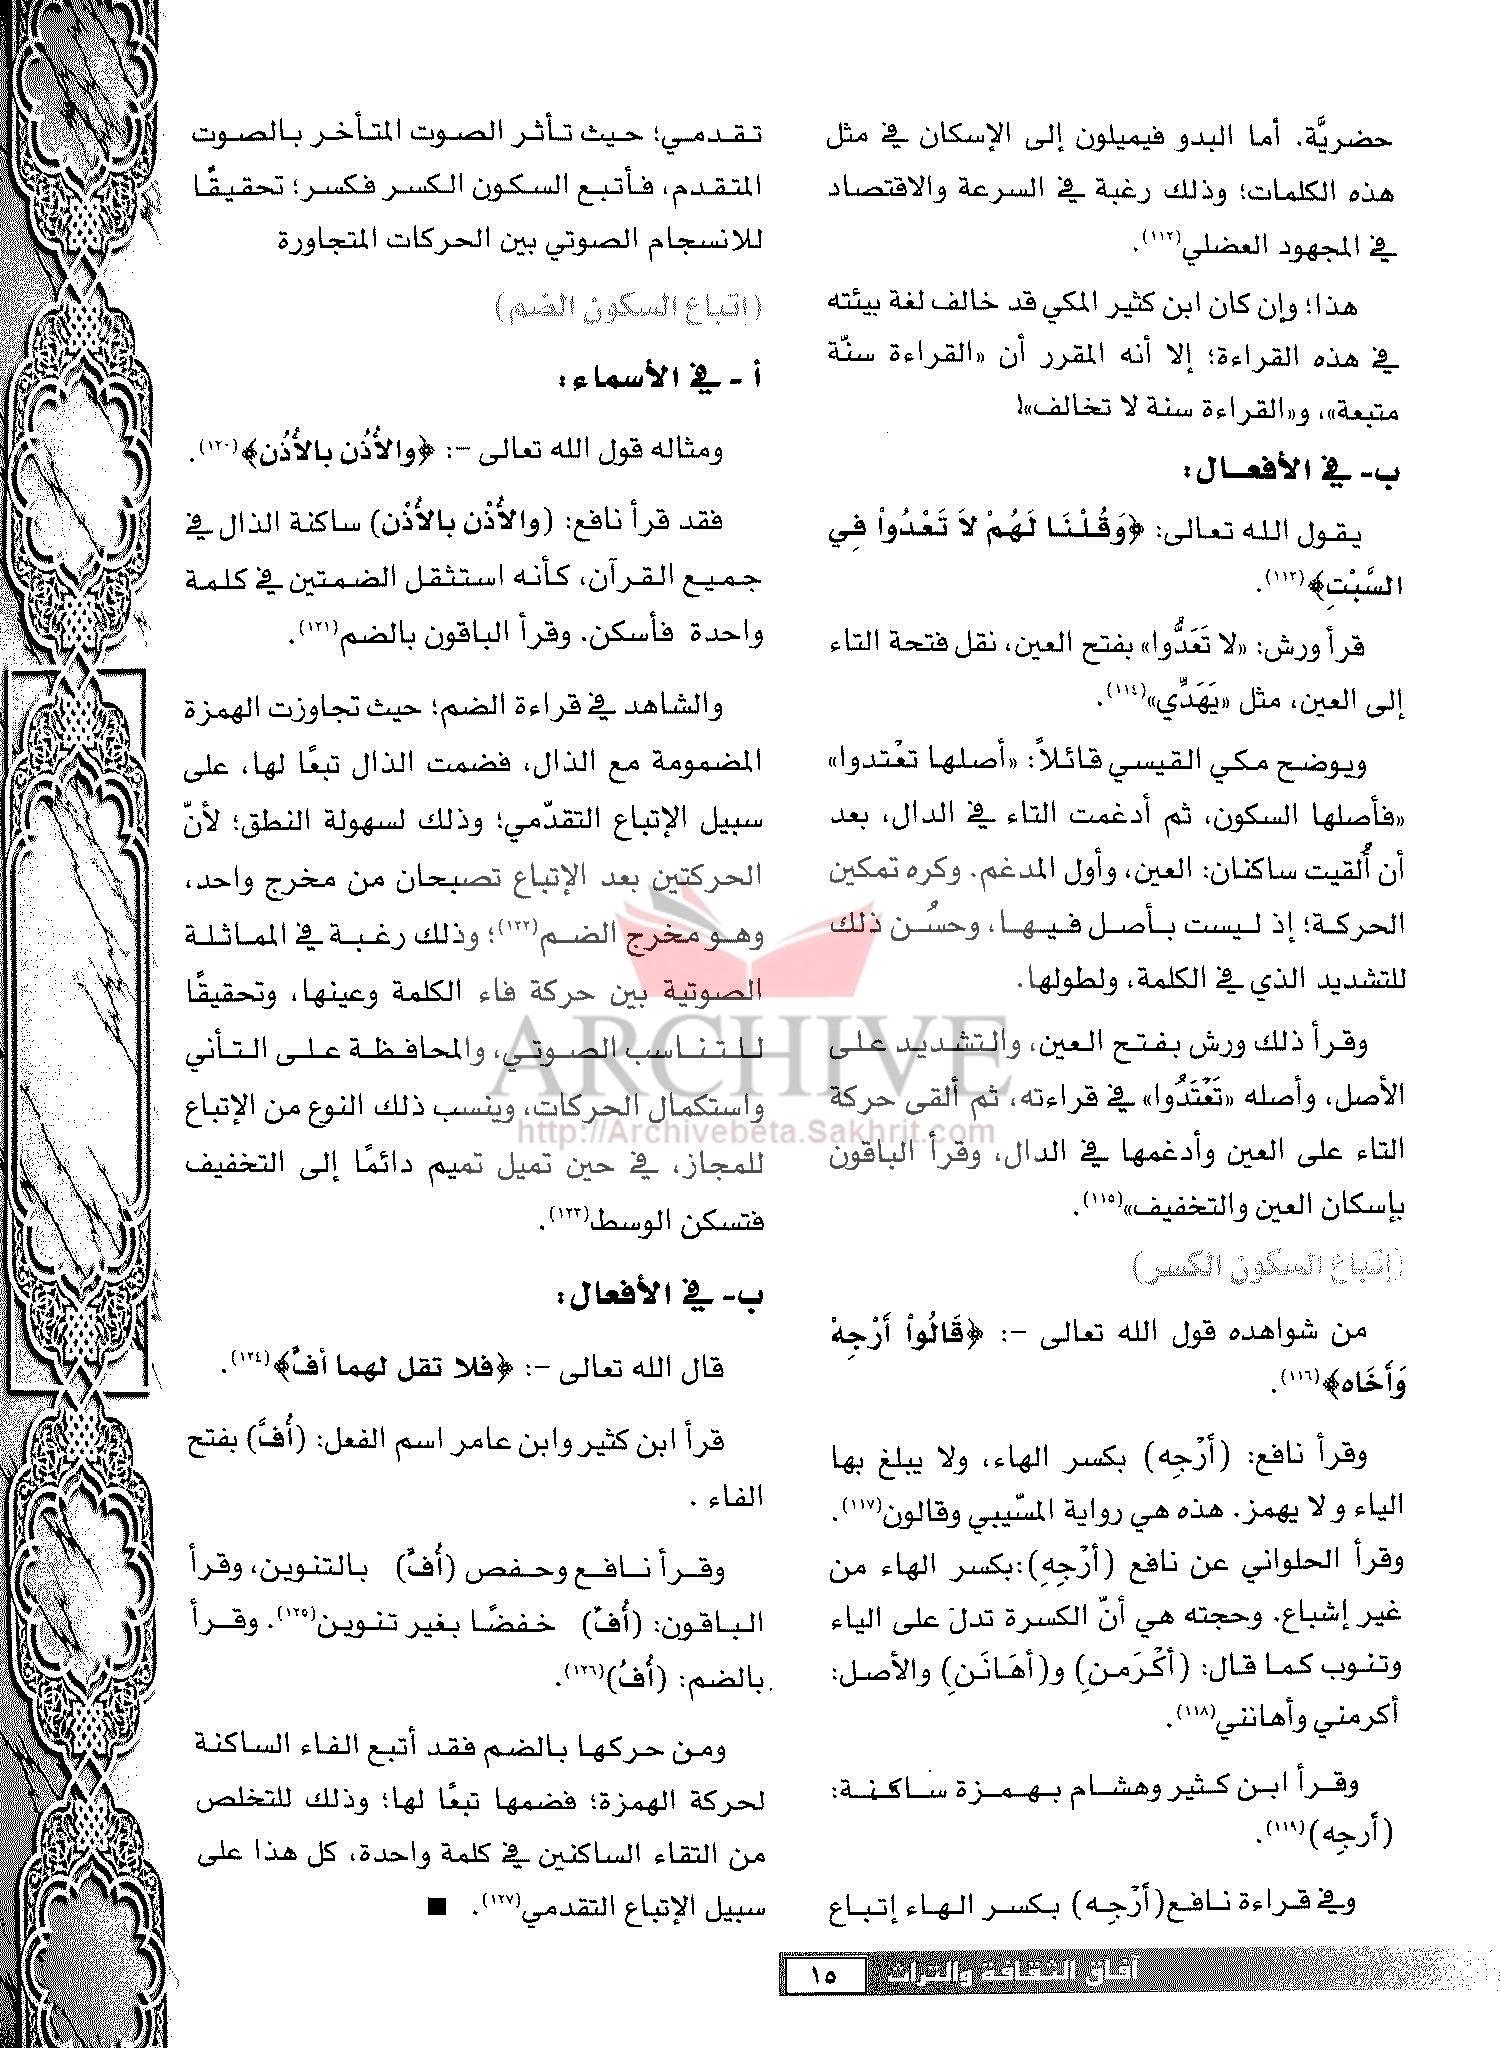 حضريَّة. أما البدو فيميلون إلى الإسكان في مثل
هذه الكلمات؛ وذلك رغبة في السرعة والاقتصاد
في المجهود العضلي(١١٢).
هذا؛ وإن كان ابن كثير المكي قد خالف لغة بيئته
في هذه القراءة؛ إلا أنه المقرر أن «القراءة سنّة
متبعة»، و«القراءة سنة لا تخالف»!
ب- في الأفعـال:
يقول الله تعالى: ﴿وَقُلْنَا لَهُمْ لاَ تَعْدُواْ فِي
السَّبْتِ﴾(١١٣).
قرأ ورش: «لا تَعَدُّوا» بفتح العين، نقل فتحة التاء
إلى العين، مثل «يَهَدِّي»(١١٤).
ويوضح مكي القيسي قائلاً: «أصلها تعْتدوا»
«فأصلها السكون، ثم أدغمت التاء في الدال، بعد
أن أُلقيت ساكنان: العين، وأول المدغم. وكره تمكين
الحركة؛ إذ ليست بأصل فيها، وحسُن ذلك
للتشديد الذي في الكلمة، ولطولها.
وقرأ ذلك ورش بفتح العين، والتشديد على
الأصل، وأصله «تَعْتَدُوا» في قراءته، ثم ألقى حركة
التاء على العين وأدغمها في الدال، وقرأ الباقون
بإسكان العين والتخفيف»(١١٥).
(إتباع السكون الكسر)
من شواهده قول الله تعالى -: ﴿قَالُواْ أَرْجِهْ
وَأَخَاه﴾(١١٦).
وقرأ نافع: (أرْجِه) بكسر الهاء، ولا يبلغ بها
الياء و لا يهمز. هذه هي رواية المسّيبي وقالون(١١٧).
وقرأ الحلواني عن نافع (أرْجِهِ):بكسر الهاء من
غير إشباع. وحجته هي أنّ الكسرة تدلّ على الياء
وتنوب كما قال: (أكْرَمنِ) و(أهَانَنِ) والأصل:
أكرمني وأهانني(١١٨).
وقرأ ابن كثير وهشام بهمزة ساكنة:
(أرجه)(١١٩).
وفي قراءة نافع(أرْجِه) بكسر الهاء إتباع
تقدمي؛ حيث تأثر الصوت المتأخر بالصوت
المتقدم، فأتبع السكون الكسر فكسر؛ تحقيقًا
للانسجام الصوتي بين الحركات المتجاورة
(إتباع السكون الضم)
أ - في الأسماء:
ومثاله قول الله تعالى -: ﴿والأُذُن بالأُذُن﴾(١٢٠).
فقد قرأ نافع: (والأُذْن بالأُذْن) ساكنة الذال في
جميع القرآن، كأنه استثقل الضمتين في كلمة
واحدة فأسكن. وقرأ الباقون بالضم(١٢١).
والشاهد في قراءة الضم؛ حيث تجاوزت الهمزة
المضمومة مع الذال، فضمت الذال تبعًا لها، على
سبيل الإتباع التقدّمي؛ وذلك لسهولة النطق؛ لأنّ
الحركتين بعد الإتباع تصبحان من مخرج واحد،
وهو مخرج الضم(١٢٢)؛ وذلك رغبة في المماثلة
الصوتية بين حركة فاء الكلمة وعينها، وتحقيقًا
للتناسب الصوتي، والمحافظة على التأني
واستكمال الحركات، وينسب ذلك النوع من الإتباع
للمجاز، في حين تميل تميم دائمًا إلى التخفيف
فتسكن الوسط(١٢٣).
ب- في الأفعال:
قال الله تعالى -: ﴿فلا تقل لهما أفّ﴾(١٢٤).
قرأ ابن كثير وابن عامر اسم الفعل: (أُفَّ) بفتح
الفاء .
وقرأ نافع وحفص (أُفٍّ) بالتنوين، وقرأ
الباقون: (أُفِّ) خفضًا بغير تنوين(١٢٥). وقرأ
بالضم: (أُفُ)(١٢٦).
ومن حركها بالضم فقد أتبع الفاء الساكنة
لحركة الهمزة؛ فضمها تبعًا لها؛ وذلك للتخلص
من التقاء الساكنين في كلمة واحدة، كل هذا على
سبيل الإتباع التقدمي(١٢٧). ■
ARCHIVE
http://Archivebeta.Sakhrit.com
آفاق الثقافة والتراث ١٥